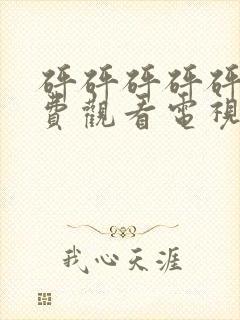 砰砰砰砰砰
費觀看電視
我心天涯